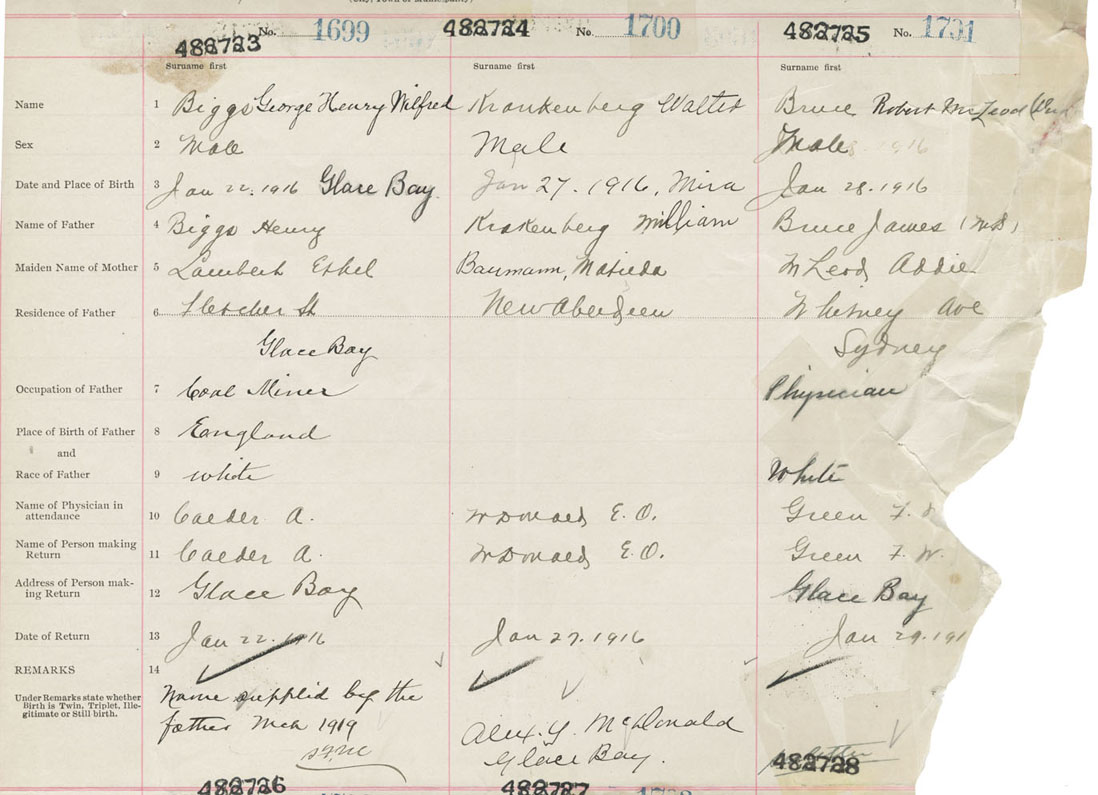 (City, Town or Municipality)
482723 No. 1699 482724 No. 1700 482725 No. 1701
Surname first Surname first Surname first
Name 1 Biggs George Henry Wilfred Krankenberg Walter Bruce Robert McLeod
Sex 2 Male Male Male 1916
Date and Place of Birth 3 Jan 22. 1916 Glace Bay. Jan 27. 1916, Mira Jan 28. 1916
Name of Father 4 Biggs Henry Krakenberg William Bruce James (M.D.)
Maiden Name of Mother 5 Lambert Ethel Baumann, Matilda McLeod Addie
Residence of Father 6 Fletcher St New Aberdeen Whitney Ave
Glace Bay Sydney
Occupation of Father 7 Coal Miner Physician
Place of Birth of Father 8 England
and
Race of Father 9 white White
Name of Physician in
attendance 10 Calder A. McDonald E. O. Green F.
Name of Person making
Return 11 Calder A. McDonald E. O. Green F. W.
Address of Person mak-
ing Return 12 Glace Bay Glace Bay
Date of Return 13 Jan 22. 1916 Jan 27. 1916 Jan 29. 191
REMARKS 14
Under Remarks state whether
Birth is Twin, Triplet, Ille-
gitimate or Still birth.
Name supplied by the
father Mch 1919
Alex. Y. McDonald
Glace Bay.
482726 482727 482728